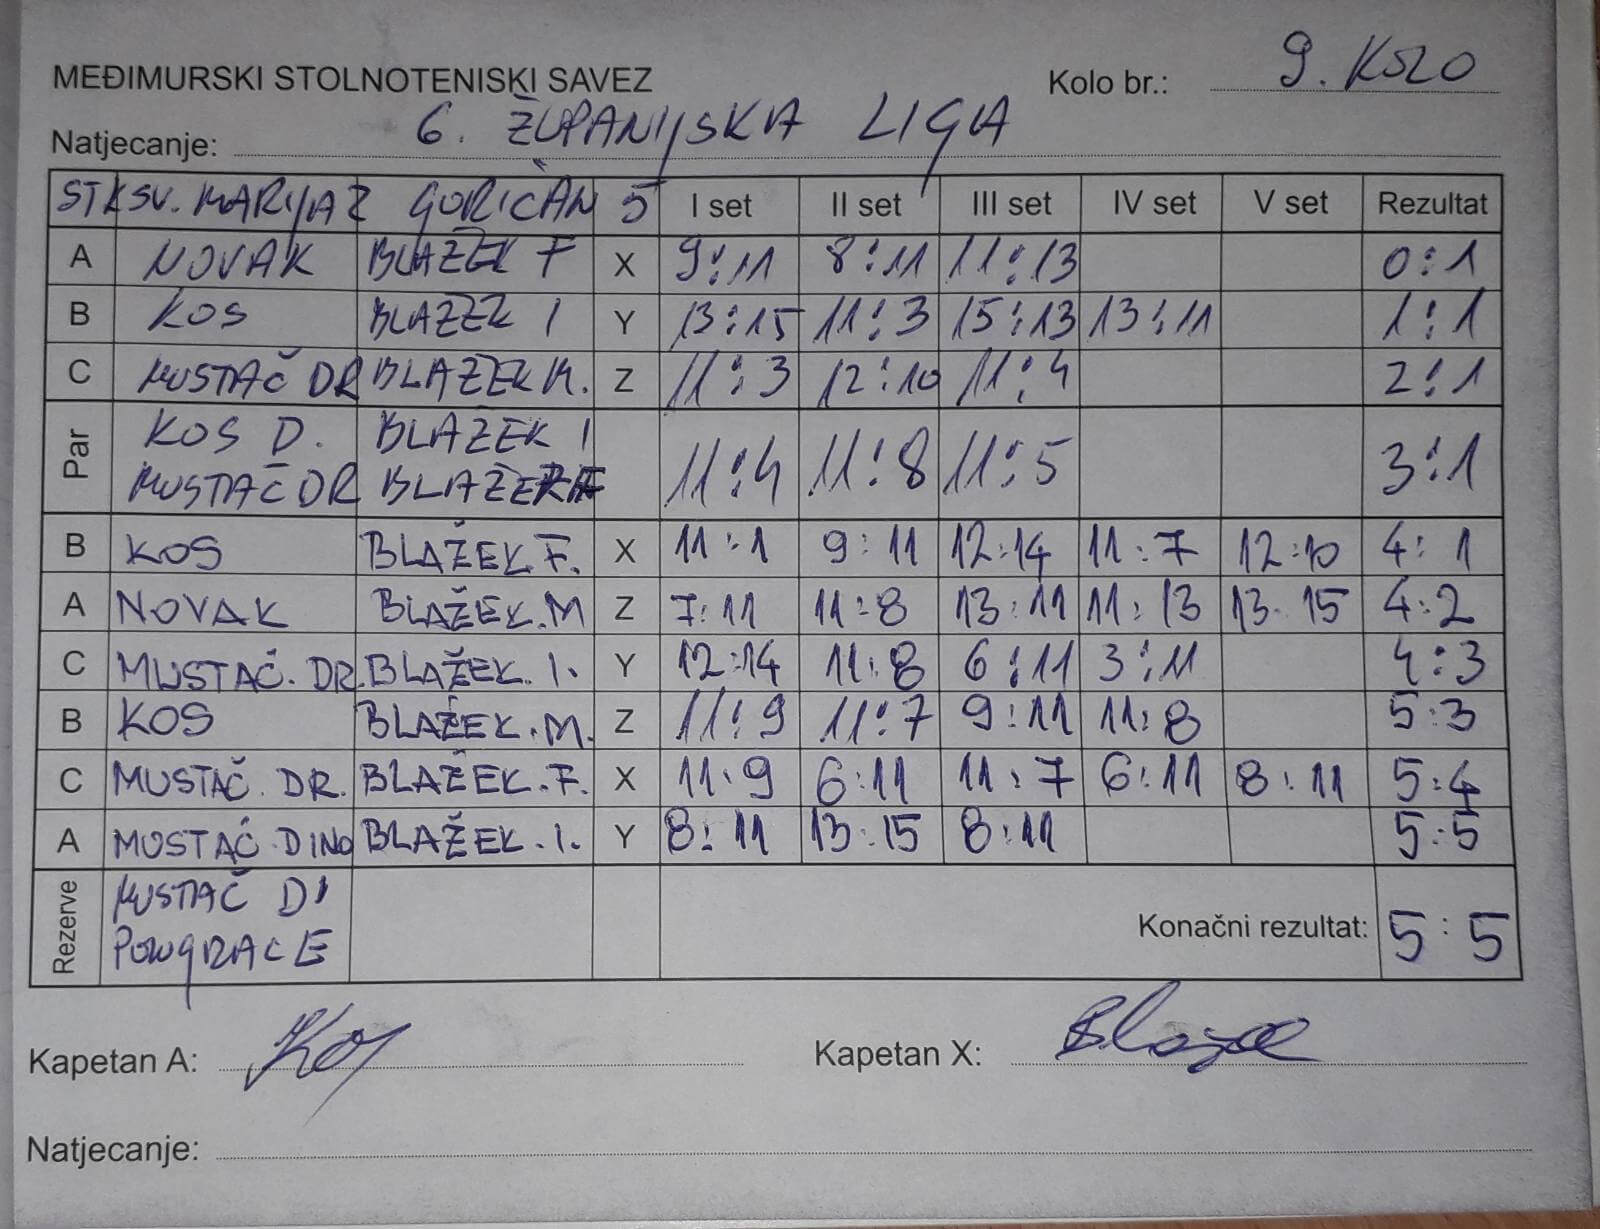 MEĐIMURSKI STOLNOTENISKI SAVEZ Kolo br.: 9. KOLO
Natjecanje: 6. ŽUPANIJSKA LIGA
STK SV. MARIJA 2 GORIČAN 5 I set II set III set IV set V set Rezultat
A NOVAK BLAŽEK F X 9:11 8:11 11:13 0:1
B KOS BLAŽEK I Y 13:15 11:3 15:13 13:11 1:1
C MUSTAČ DR BLAZEK M. Z 11:3 12:10 11:4 2:1
Par KOS D. BLAZEK I 11:4 11:8 11:5 3:1
MUSTAČ DR BLAZEK F
B KOS BLAŽEK.F. X 11:1 9:11 12:14 11:7 12:10 4:1
A NOVAK BLAŽEK.M Z 7:11 11:8 13:11 11:13 13 15 4:2
C MUSTAČ. DR. BLAŽEK. I. Y 12:14 11:8 6:11 3:11 4:3
B KOS BLAŽEK.M. Z 11:9 11:7 9:11 11:8 5:3
C MUSTAČ. DR. BLAŽEK.F. X 11:9 6:11 11:7 6:11 8:11 5:4
A MUSTAČ DINO BLAŽEK.I. Y 8:11 13:15 8:11 5:5
Rezerve MUSTAČ DI Konačni rezultat: 5:5
Kapetan A: Kos Kapetan X:
Natjecanje: